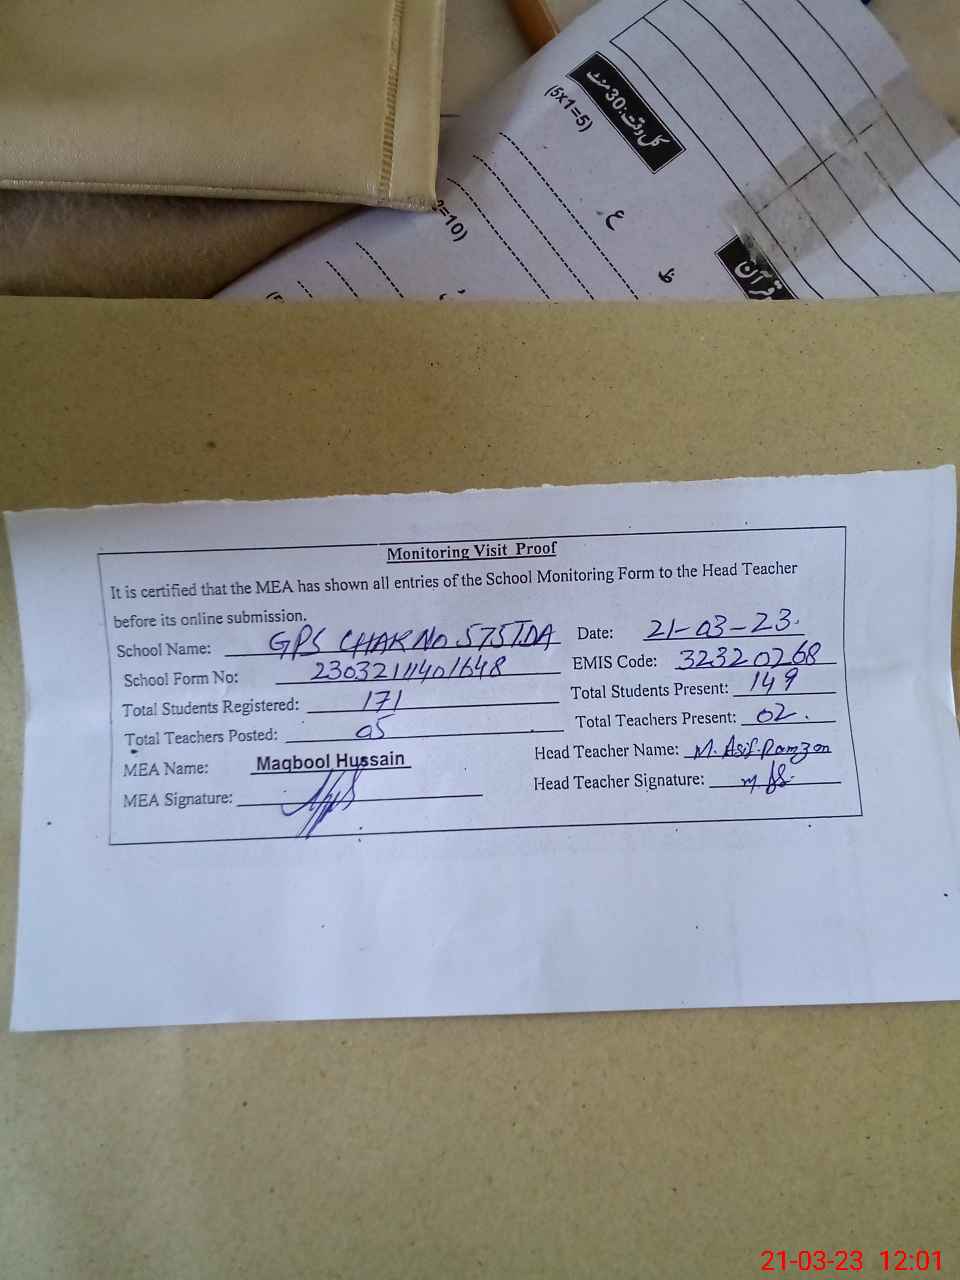 کل وقت: 30 منٹ
(5x1=5)
2=10)
ع
ظ
قرآن
Monitoring Visit Proof
It is certified that the MEA has shown all entries of the School Monitoring Form to the Head Teacher
before its online submission.
School Name: GPS CHAK NO 575TDA Date: 21-03-23.
School Form No: EMIS Code: 32320268
Total Students Registered: 171 Total Students Present: 149
Total Teachers Posted: 05 Total Teachers Present: 02.
MEA Name: Maqbool Hussain Head Teacher Name: M. Asif Ramzan
MEA Signature: Head Teacher Signature:
21-03-23 12:01